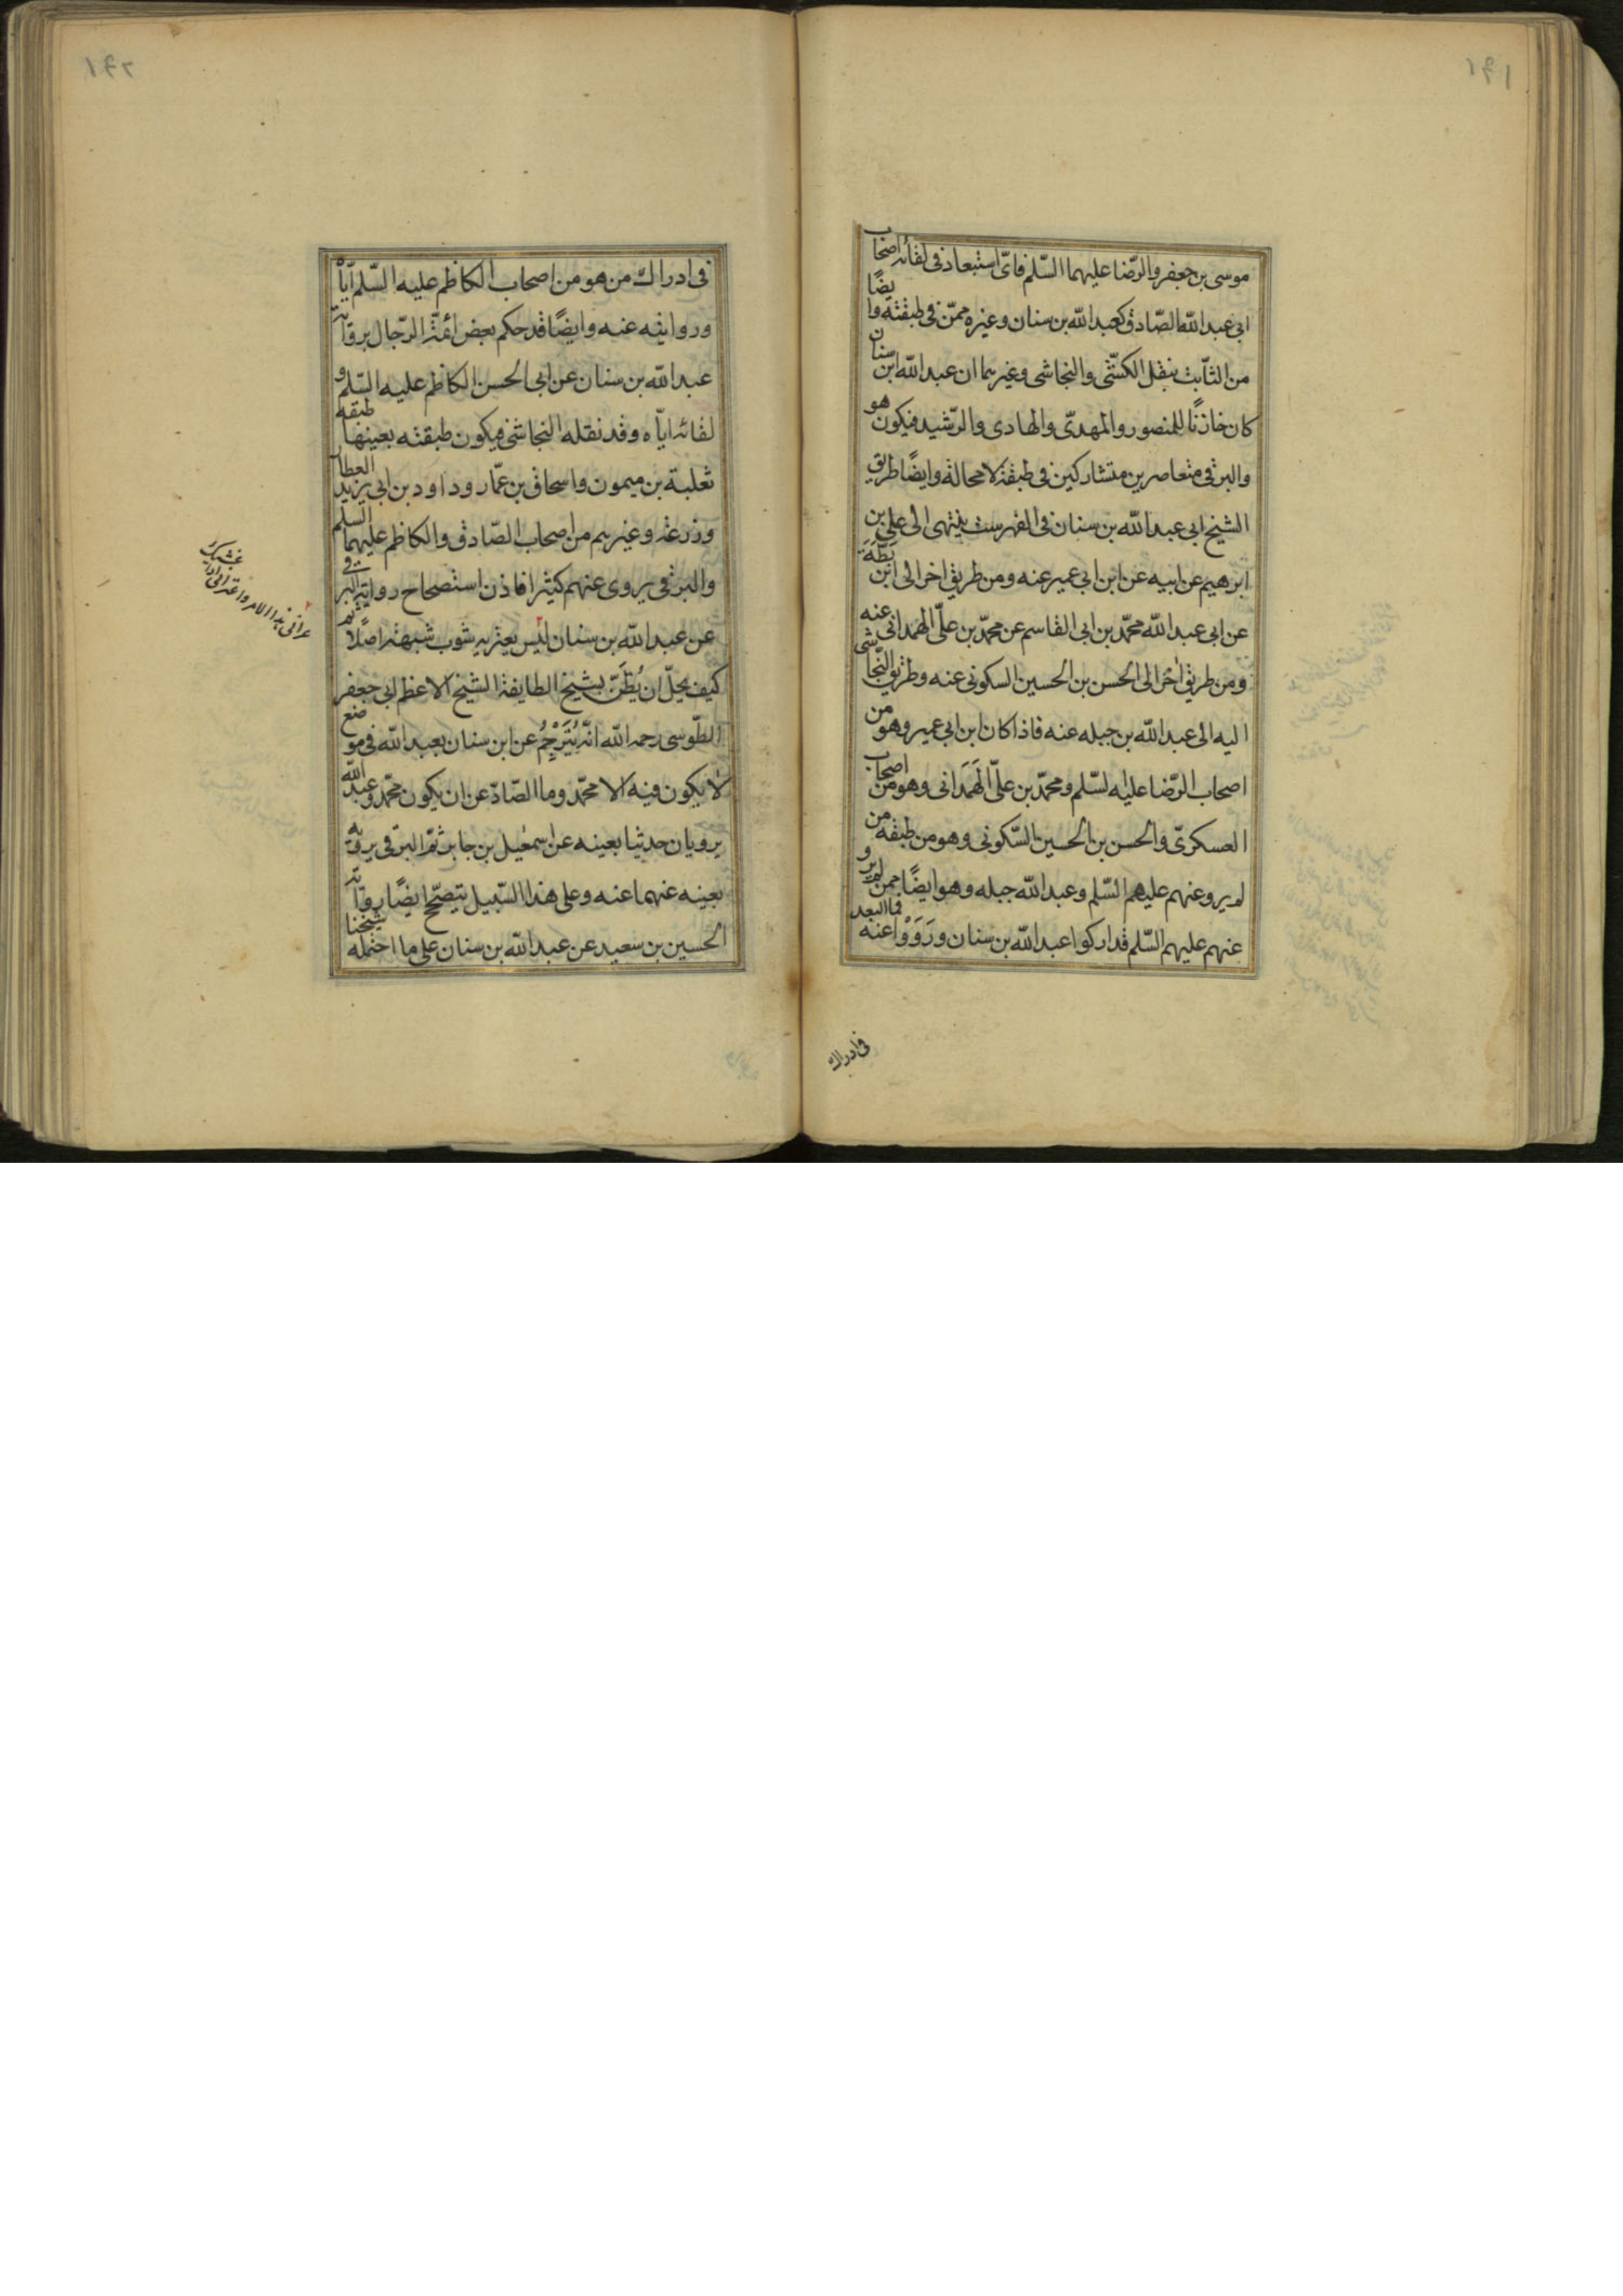 موسى بن جعفر والرّضا عليهما السّلم فاىّ استبعاد فى لقائه اصحاب
ابى عبد الله الصّادق كعبد الله بن سنان وغيره ممّن فى طبقته وايضًا
من الثّابت بنقل الكشّى والنجاشى وغيرهما ان عبد الله ابن سنان
كان خازنًا للمنصور والمهدىّ والهادى والرّشيد فيكون هو
والبرقى متعاصرين متشاركين فى طبقة لا محالة وايضًا طريق
الشيخ ابى عبد الله بن سنان فى الفهرست ينتهى الى على بن
ابرهيم عن ابيه عن ابن ابى عمير عنه ومن طريق اخر الى ابن بَطَّةَ
عن ابى عبد الله محمّد بن ابى القاسم عن محمّد بن علىّ الهمدانى عنه
ومن طريق اخر الى الحسن بن الحسين السكونى عنه وطريق النّجاشى
اليه الى عبد الله بن جبله عنه فاذا كان ابن ابى عمير وهو من
اصحاب الرّضا عليه لسّلم ومحمّد بن علىّ الهَمَدانى وهو من اصحاب
العسكرىّ والحسن بن الحسين السّكونى وهو من طبقه من
لم يرو عنهم عليهم السّلم وعبد الله جبله وهو ايضًا ممن لم يرو
عنهم عليهم السّلم قد ادركوا عبد الله بن سنان ورَوَوْا عنه فما البعد
فى ادراك
فى ادراك من هو من اصحاب الكاظم عليه السّلم ايّاه
وروايته عنه وايضًا قد حكم بعض ائمّة الرّجال برواية
عبد الله بن سنان عن ابى الحسن الكاظم عليه السّلم و
لقائه ايّاه وقد نقله النجاشى فيكون طبقته بعينها طبقه
ثعلبة بن ميمون واسحاق بن عمّار وداود بن ابى يزيد العطار
وزرعة وغيرهم من اصحاب الصّادق والكاظم عليهما السلم
والبرقى يروى عنهم كثيرا فاذن استصحاح رواية البرقى
عن عبد الله بن سنان ليس يعتريه شوب شبهة اصلًا ثم
كيف يحلّ ان يُظَنّ بشيخ الطايفة الشيخ الاعظم ابى جعفر
الطّوسى رحمه الله انّه يُتَرْجِمُ عن ابن سنان بعبد الله فى موضع
لا يكون فيه الا محمّد وما الصّادّ عن ان يكون محمّد وعبد الله
يرويان حديثا بعينه عن اسمعيل بن جابر ثمّ البرقى يرويه
بعينه عنهما عنه وعلى هذا السّبيل يتصحّح ايضًا رواية
الحسين بن سعيد عن عبد الله بن سنان على ما احتمله شيخنا